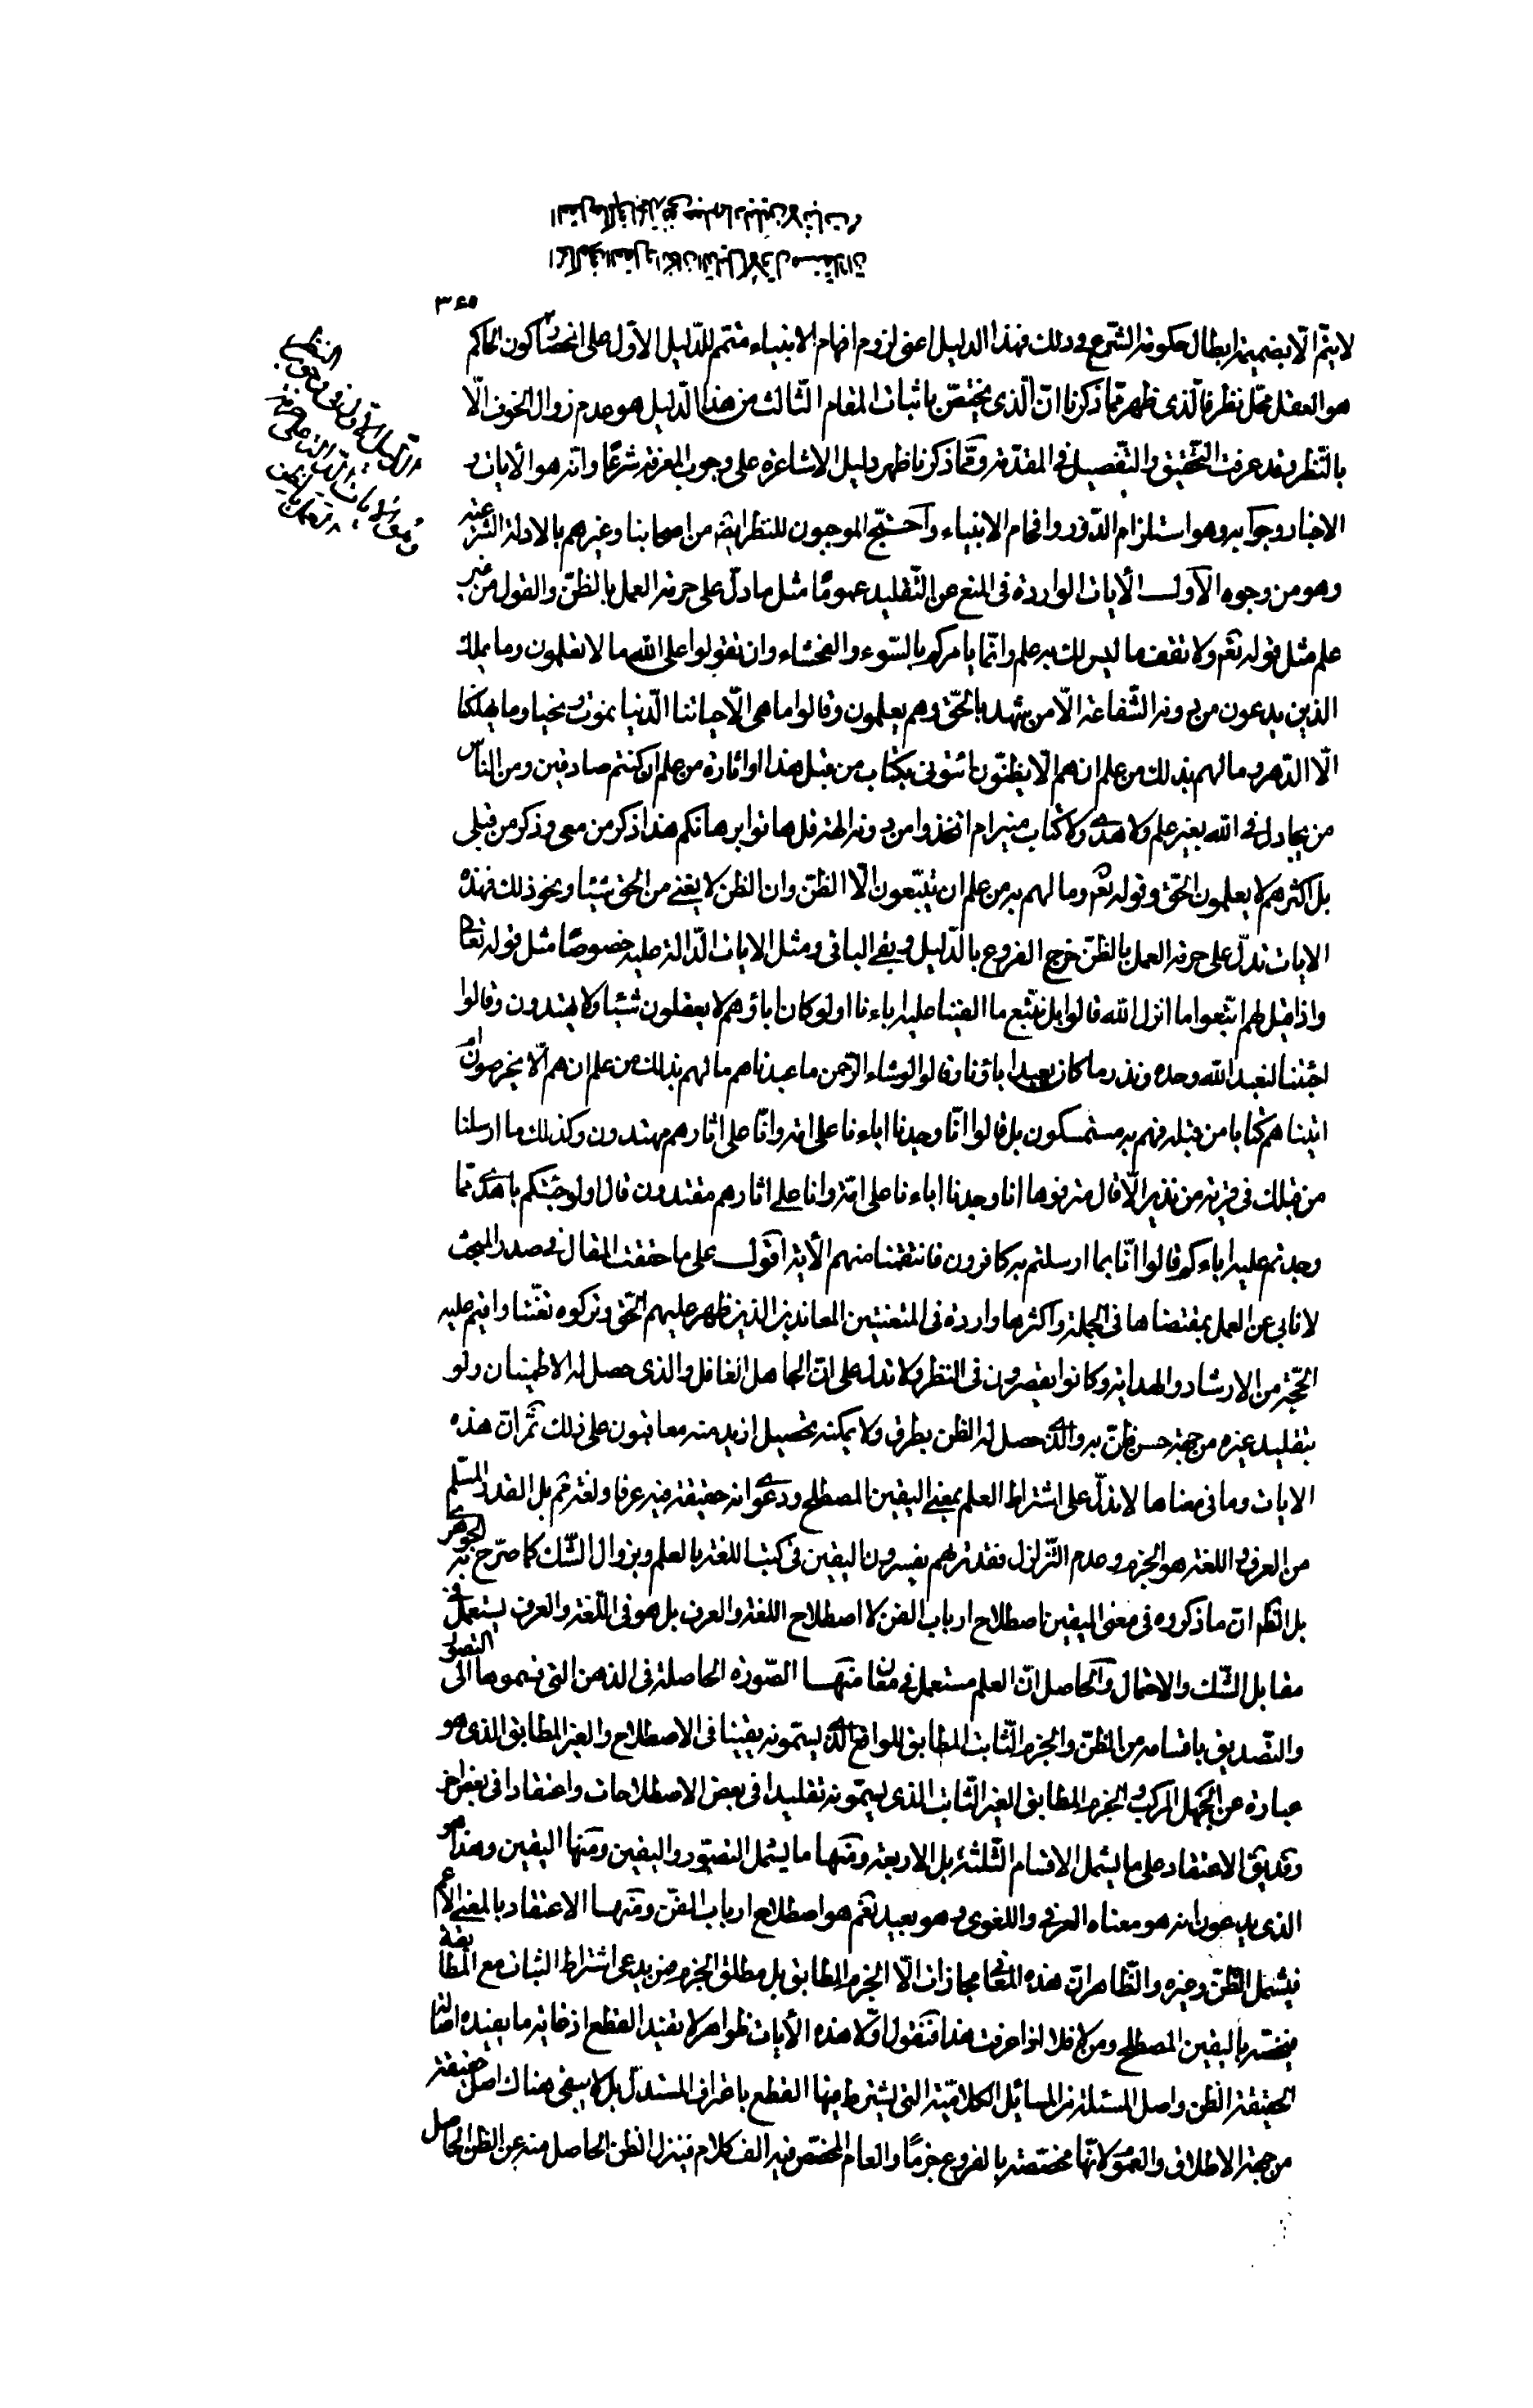 ٣٤٥
لا يتم الّا بضميمة ابطال حكومة الشّرع وذلك فهذا الدليل اعنى لزوم افهام الانبياء متمّم للدّليل الاوّل على انحصار كون الحاكم
هو العقل محلّ نظر فالّذى ظهر ممّا ذكرنا انّ الّذى يختصّ باثبات المقام الثّالث من هذا الدّليل هو عدم زوال الخوف الّا
بالنّظر وقد عرفت التّحقيق والتّفصيل فى المقدّمة وممّا ذكرنا ظهر دليل الاشاعرة على وجوب المعرفة شرعًا وانّه هو الأيات و
الاخبار وجوابه وهو استلزام الدّور وافحام الانبياء وآحتجّ الموجبون للنّظر ايضا من اصحابنا وغيرهم بالادلة الشرعيّة
وهو من وجوه الآول الأيات الواردة فى المنع عن التّقليد عمومًا مثل ما دلّ على حرمة العمل بالظنّ والقول من غير
علم مثل قوله تعم ولا تقف ما ليس لك به علم وانّما يامركم بالسّوء والفحشاء وان تقولوا على الله ما لا تعلمون وما يملك
الذين يدعون من دونه الشّفاعة الّا من شهد بالحقّ وهم يعلمون وقالوا ما هى الّا حياتنا الدّنيا نموت ونحيا وما يهلكنا
الّا الدّهر وما لهم بذلك من علم ان هم الّا يظنّون ائتونى بكتاب من قبل هذا او اثارة من علم ان كنتم صادقين ومن الناس
من يجادل فى الله بغير علم ولا هدى ولا كتاب منير ام اتخذوا من دونه الهة قل هاتوا برهانكم هذا ذكر من معى وذكر من قبلى
بل اكثرهم لا يعلمون الحقّ وقوله تعم وما لهم به من علم ان يتبّعون الّا الظنّ وان الظن لا يغنى من الحق شيئا ونحو ذلك فهذه
الايات تدلّ على حرمة العمل بالظنّ خرج الفروع بالدّليل وبقى الباقى ومثل الايات الدّالة عليه خصوصًا مثل قوله تعالى
واذا قيل لهم اتبّعوا ما انزل الله قالوا بل نتّبع ما الفينا عليه اباءنا او لو كان اباؤهم لا يعقلون شيئا ولا يهتدون وقالوا
اجئتنا لنعبد الله وحده ونذر ما كان يعبد اباؤنا وقالوا لو شاء الرّحمن ما عبدناهم ما لهم بذلك من علم ان هم الّا يخرصون ام
اتيناهم كتابا من قبله فهم به مستمسكون بل قالوا انّا وجدنا اباءنا على امة وانّا على اثارهم مهتدون وكذلك ما ارسلنا
من قبلك فى قرية من نذير الّا قال مترفوها انا وجدنا اباءنا على امّة وانا على اثارهم مقتدون قال اولو جئتكم باهدى ممّا
وجدتم عليه اباءكم قالوا انّا بما ارسلتم به كافرون فانتقمنا منهم الأية اقول على ما حققت المقال فى صدر المبحث
لا نابى عن العمل بمقتضاها فى الجملة واكثرها واردة فى المتعنتين المعاندين الذين ظهر عليهم الحّق وتركوه تعنّتا واقيم عليه
الحجّة من الارشاد والهداية وكانوا يقصرون فى النظر ولا تدل على انّ الجاهل الغافل والذى حصل له الاطمينان ولو
بتقليد غيره من جهة حسن ظنّ به والّذى حصل له الظن بطرف ولا يمكنه تحصيل ازيد منه معاقبون على ذلك ثمّ انّ هذه
الايات وما فى معناها لا تدلّ على اشتراط العلم بمعنى اليقين المصطلح ودعوى انه حقيقة فيه عرفا ولغة ثم بل القدر المسلّم
من العرف واللغة هو الجزم وعدم التّزلزل فقد تريهم يفسرون اليقين فى كتب اللغة بالعلم وبزوال الشّك كما صرّح به الجوهرى
بل الظّم انّ ما ذكروه فى معنى اليقين اصطلاح ارباب الفن لا اصطلاح اللغة والعرف بل هو فى اللّغة والعرف يستعمل فى
مقابل الشّك والاحتمال والحاصل انّ العلم مستعمل فى معان منها الصّورة الحاصلة فى الذهن التى قسموها الى التصوّر
والتّصديق باقسامه من الظنّ والجزم الثّابت المطابق للواقع الّذى يسمّونه يقينا فى الاصطلاح والغير المطابق الّذى هو
عبارة عن الجهل المركب والجزم المطابق الغير الثّابت الذى يسمّونه تقليدا فى بعض الاصطلاحات واعتقادا فى بعض اخر
وقد يطلق الاعتقاد على ما يشمل الاقسام الثّلثة بل الاربعة ومنها ما يشمل التصوّر واليقين ومنها اليقين وهذا هو
الذى يدعون انه هو معناه العرفى واللغوى وهو بعيد نعم هو اصطلاح ارباب الفنّ ومنها الاعتقاد بالمعنى الاعم
فيشمل الظّنّ وغيره والظّاهر انّ هذه المعانى مجازات الّا الجزم المطابق بل مطلق الجزم فمن يدعى اشتراط الثبات مع المطابقة
فيختصه باليقين المصطلح ومن لا فلا اذا عرفت هذا فنقول اوّلا هذه الأيات ظواهر لا تفيد القطع اذ غاية ما يفيده اصالة
الحقيقة الظن واصل المسئلة من المسائل الكلاميّة التى يشترط فيها القطع باعتراف المستدلّ بل لا يبقى هناك اصل حقيقة
من جهة الاطلاق والعموم لانّها مختصة بالفروع جزمًا والعام المخصّص فيه الف كلام فينزل الظن الحاصل منه عن الظن الحاصل